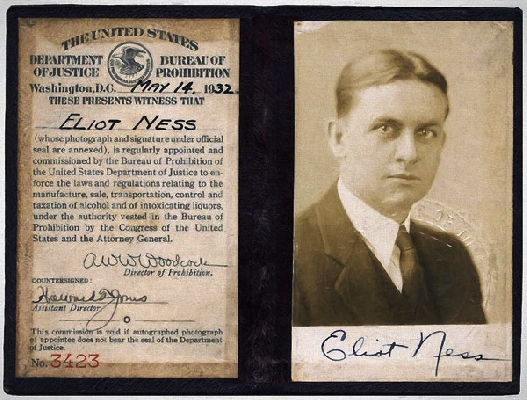 THE UNITED STATES
DEPARTMENT OF JUSTICE
BUREAU OF PROHIBITION
Washington, D.C. MAY 14, 1932.
THESE PRESENTS WITNESS THAT
ELIOT NESS
(whose photograph and signature under official
seal are annexed), is regularly appointed and
commissioned by the Bureau of Prohibition of
the United States Department of Justice to en-
force the laws and regulations relating to the
manufacture, sale, transportation, control and
taxation of alcohol and of intoxicating liquors,
under the authority vested in the Bureau of
Prohibition by the Congress of the United
States and the Attorney General.
AWW Woodcock
Director of Prohibition.
COUNTERSIGNED:
Assistant Director
This commission is void if autographed photograph
of appointee does not bear the seal of the Department
of Justice.
No. 3423
Eliot Ness